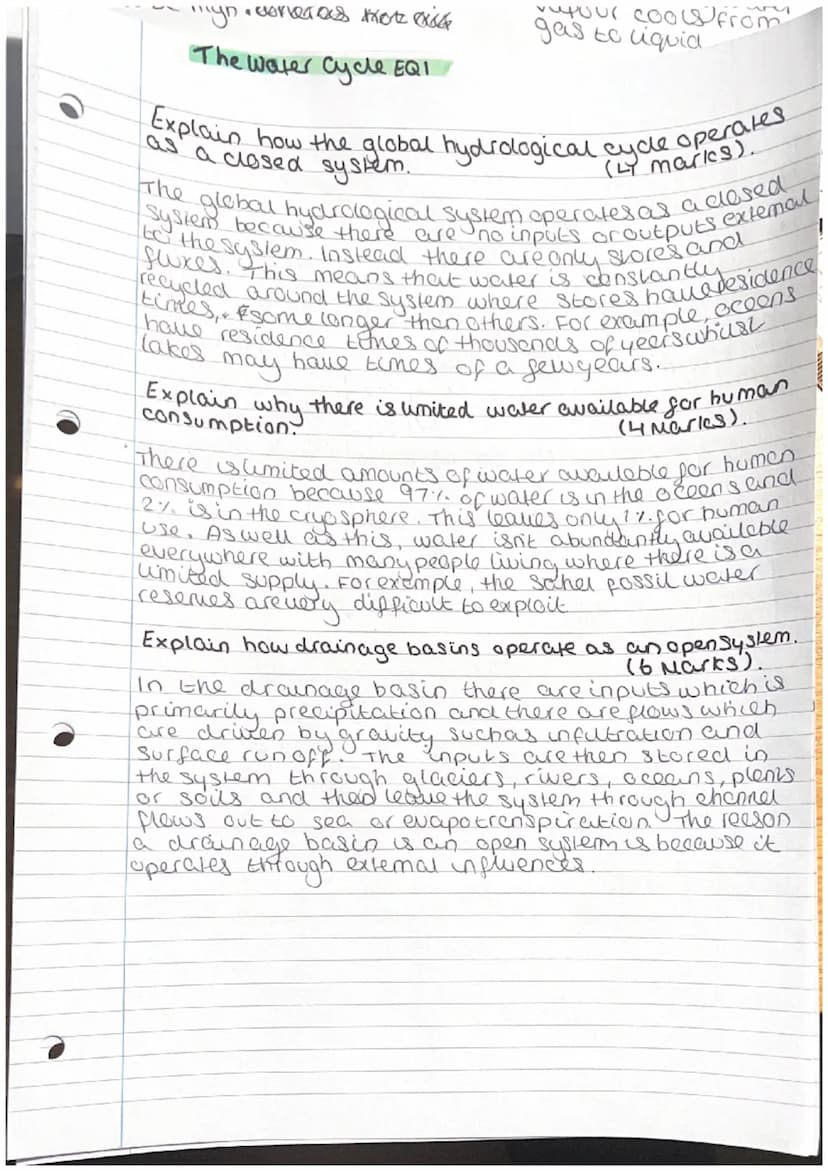 vapour cools from
gas to liquid
The Water Cycle EQ1
Explain how the global hydrological cycle operates
as a closed system. (4 marks).
The global hydrological system operates as a closed
system because there are no inputs or outputs external
to the system. Instead there are only stores and
fluxes. This means that water is constantly
recycled around the system where stores have residence
times, some longer than others. For example, oceans
have residence times of thousands of years whilst
lakes may have times of a few years.
Explain why there is limited water available for human
consumption. (4 Marks).
There is limited amounts of water available for human
consumption because 97% of water is in the oceans and
2% is in the cryosphere. This leaves only 1% for human
use. As well as this, water isn't abundantly available
everywhere with many people living where there is a
limited supply. For example, the Sahel fossil water
reserves are very difficult to exploit
Explain how drainage basins operate as an open system.
(6 Marks).
In the drainage basin there are inputs which is
primarily precipitation and there are flows which
are driven by gravity such as infiltration and
surface runoff. The inputs are then stored in
the system through glaciers, rivers, oceans, plants
or soils and then leave the system through channel
flows out to sea or evapotranspiration. The reason
a drainage basin is an open system is because it
operates through external influences.